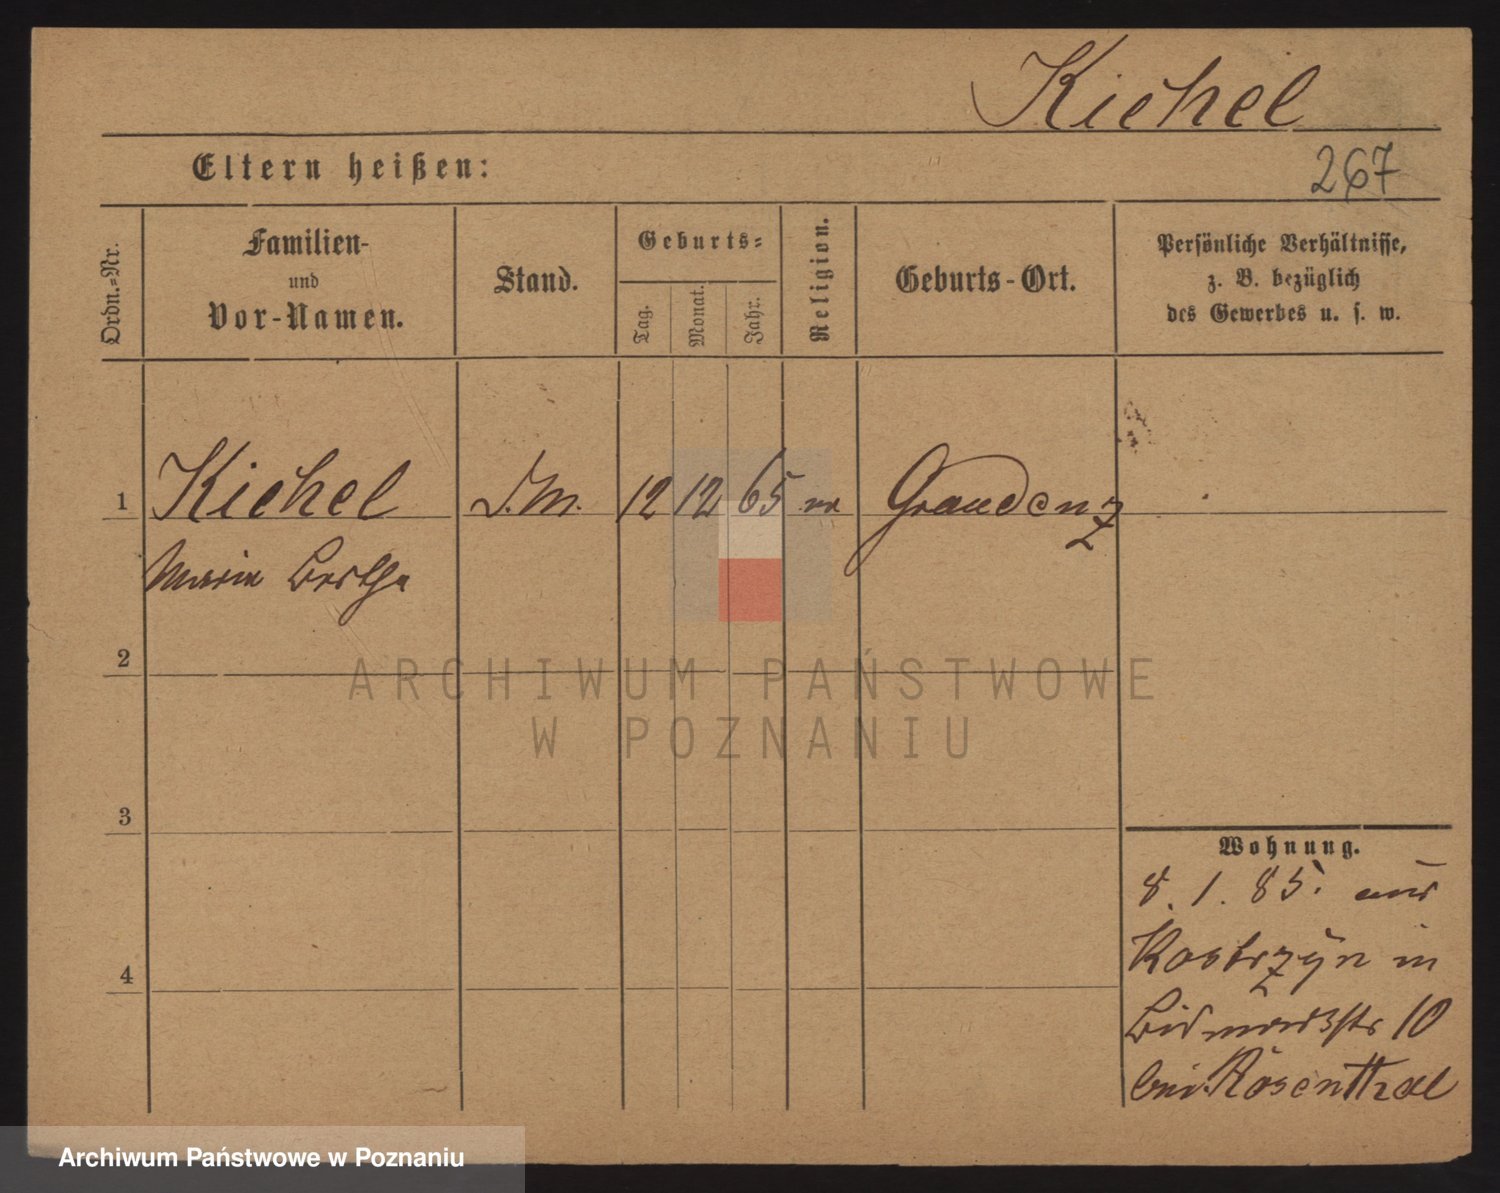 Kiehel
Eltern heißen:
267
Ordn.=Nr.
Familien-
und
Vor-Namen.
Stand.
Geburts=
Tag.
Monat.
Jahr.
Religion.
Geburts-Ort.
Persönliche Verhältnisse,
z. B. bezüglich
des Gewerbes u. s. w.
1 Kiehel 12 12 65 Graudenz
Maria Bertha
2
ARCHIWUM PAŃSTWOWE
W POZNANIU
3
4
Wohnung.
8. 1. 85. aus
Kostrzyn in
Bismarckstr 10
bei Rosenthal
Archiwum Państwowe w Poznaniu